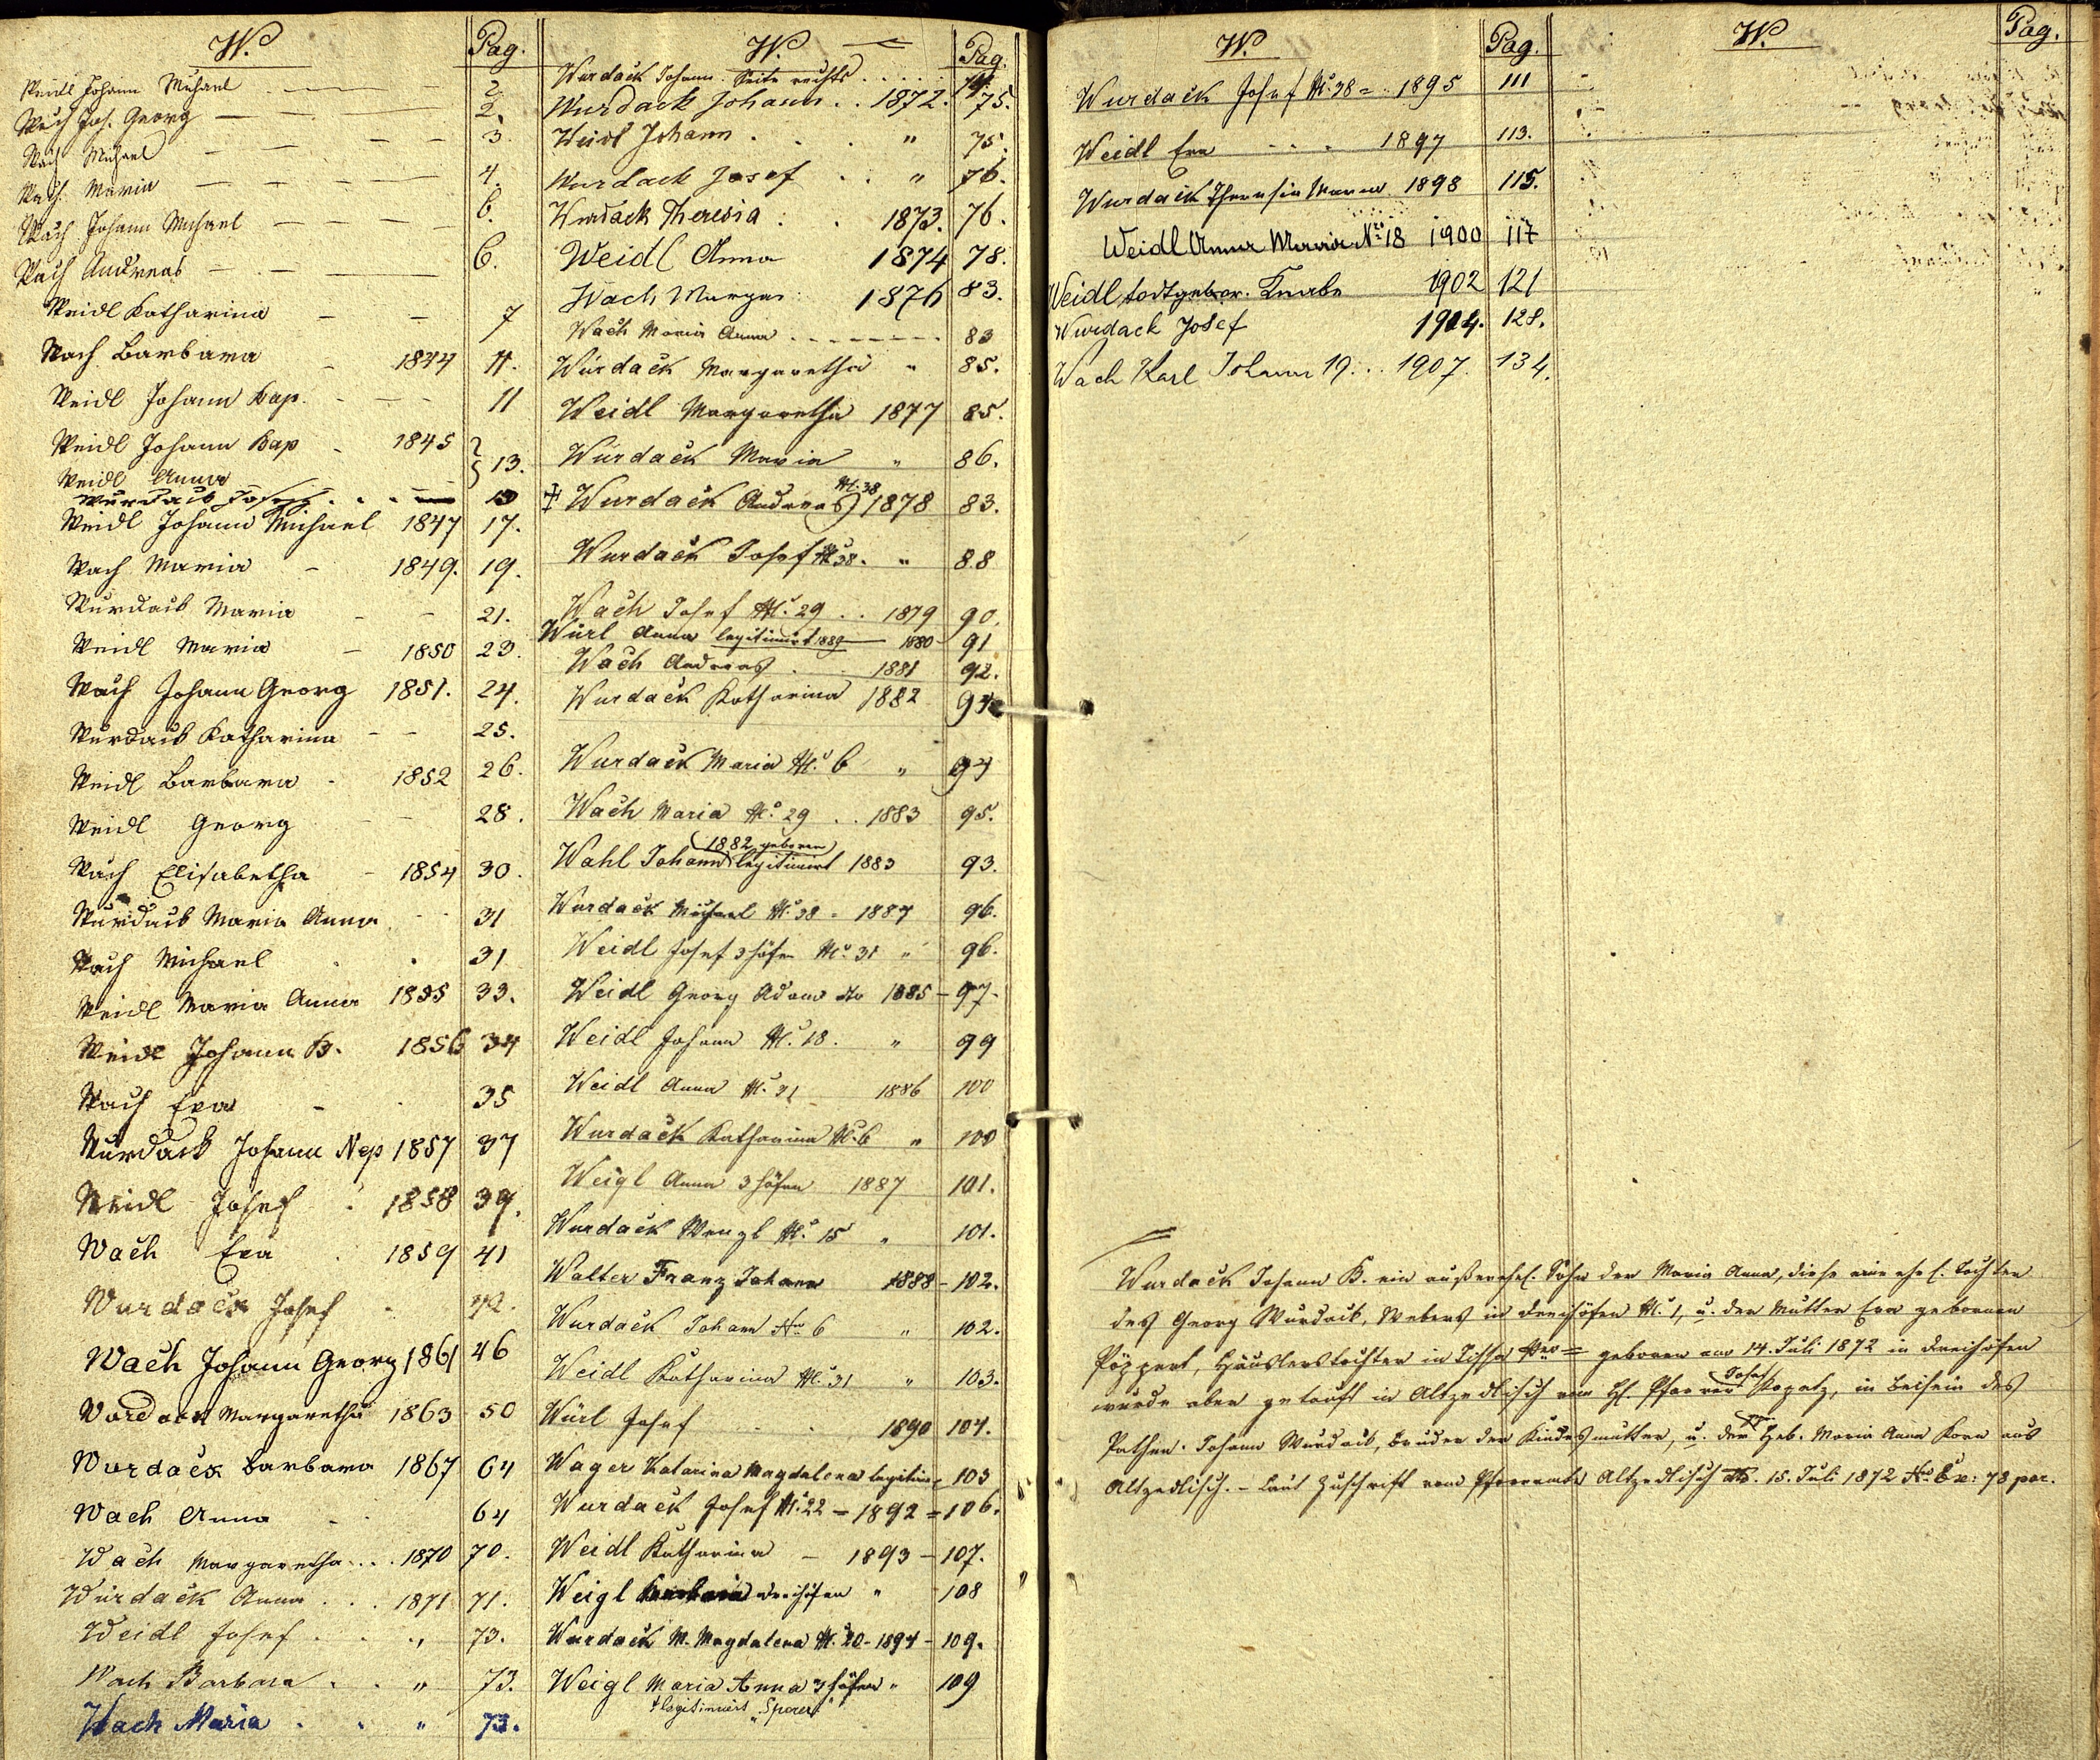 W. Pag.
Weidl Johann Michael 2.
Wach Joh. Georg 2.
Wach Michael 3.
Wach Maria 4.
Wach Johann Michael 6.
Wach Andreas 6.
Weidl Katharina 7
Wach Barbara 1844 11.
Weidl Johann Bap. 11
Weidl Johann Bap 1845
Weidl Anna 13.
Wurdack Joseph
Weidl Johann Michael 1847 17.
Wach Maria 1849. 19.
Wurdack Maria 21.
Weidl Maria 1850 23.
Wach Johann Georg 1851. 24.
Wurdack Katharina 25.
Weidl Barbara 1852 26.
Weidl Georg 28.
Wach Elisabetha 1854 30.
Wurdack Maria Anna 31
Wach Michael 31
Weidl Maria Anna 1855 33.
Weidl Johann B. 1856 34
Wach Eva 35
Wurdack Johann Nep 1857 37
Weidl Josef 1858 39.
Wach Eva 1859 41
Wurdack Josef 42.
Wach Johann Georg 1861 46
Wurdack Margaretha 1863 50
Wurdack Barbara 1867 64
Wach Anna 64
Wach Margaretha 1870 70.
Wurdack Anna 1871 71.
Weidl Josef " 73.
Wach Barbara " 73.
Wach Maria " 73.
W. Pag.
Wurdack Johann. Seite rechts 74.
Wurdack Johann 1872. 75.
Weidl Johann " 75.
Wurdack Josef " 76.
Wurdack Theresia 1873. 76.
Weidl Anna 1874 78.
Wach Margar. 1876 83.
Wach Maria Anna 83
Wurdack Margaretha " 85.
Weidl Margaretha 1877 85.
Wurdack Maria " 86.
Wurdack Andreas N. 38 1878 83.
Wurdack Josef N. 38. " 88
Wach Josef N. 29 1879 90.
Würl Anna legitimirt 1889 1880 91
Wach Andreas 1881 92.
Wurdack Katharina 1882 94
Wurdack Maria N. 6 " 94
Wach Maria N. 29 1883 95.
(1882 geboren)
Wahl Johann legitimirt 1883 93.
Wurdack Michael N. 38 - 1884 96.
Weidl Josef 3höfen N. 31 " 96.
Weidl Georg Adam dto 1885 - 97.
Weidl Johann N. 18. " 99
Weidl Anna N. 31 1886 100
Wurdack Katharina N. 6 " 100
Weigl Anna 3höfen 1887 101.
Wurdack Wenzl N. 15 " 101.
Walter Franz Johann 1888 - 102.
Wurdack Johann No 6 " 102.
Weidl Katharina N. 31 " 103.
Würl Josef 1890 104.
Wager Katarina Magdalena legitim. 105
Wurdack Josef N. 22 - 1892 = 106.
Weidl Katharina - 1893 - 107.
Weigl Barbara Dreihöfen " 108
Wurdack M. Magdalena N. 20 - 1894 - 109.
Weigl Maria Anna 3höfen " 109
† legitimiert "Sperer"
W. Pag.
Wurdack Josef N. 38 = 1895 111
Weidl Eva 1897 113.
Wurdack Theresia Maria 1898 115.
Weidl Anna Maria No 18 1900 117
Weidl todtgebor. Knabe 1902 121
Wurdack Josef 1904. 128.
Wach Karl Johann 19. 1907. 134.
W. Pag.
Wurdack Johann B. ein außerehel. Sohn der Maria Anna, diese eine ehel. Tochter
des Georg Wurdack, Webers in Dreihöfen N. 1, u. der Mutter Eva gebornen
Pöppert, Häuslerstochter in Tissa = geboren am 14. Juli 1872 in Dreihöfen
wurde aber getauft in Altzedlisch vom H. Pfarrer Josef Kopatz, in Beisein des
Pathen Johann Wurdack, Bruder der Kindesmutter, u. der Heb. Maria Anna Korn aus
Altzedlisch. - Laut Zuschrift vom Pfarramte Altzedlisch dto. 15. Juli 1872 No Ex: 78 par.